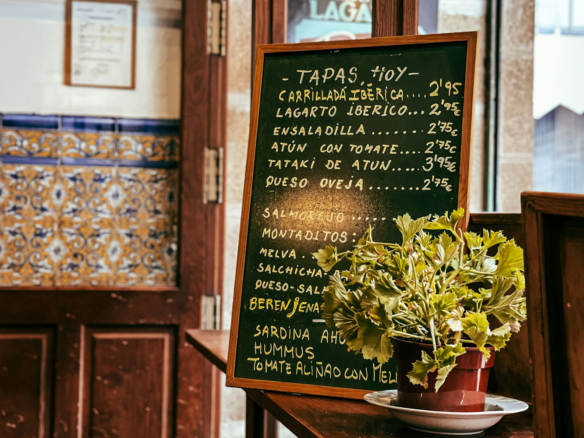 LAGA
- TAPAS HOY -
CARRILLADA IBÉRICA.... 2'95
LAGARTO IBERICO... 2'95€
ENSALADILLA ........ 2'75€
ATÚN CON TOMATE.... 2'75€
TATAKI DE ATUN..... 3'95€
QUESO OVEJA ....... 2'75€
SALMOREJO .....
MONTADITOS:
MELVA
SALCHICHA
QUESO-
BERENJENA
SARDINA
HUMMUS
TOMATE ALIÑAO CON